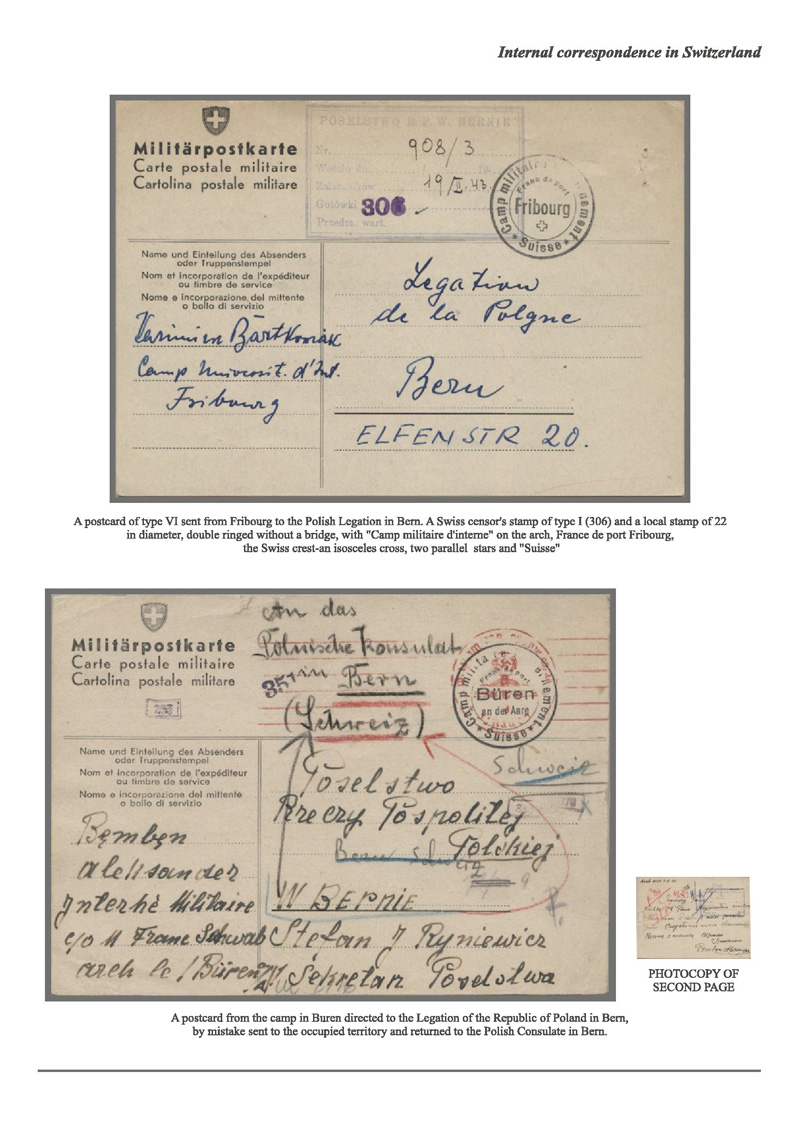 Internal correspondence in Switzerland
POSELSTWO R.P. W BERNIE
Militärpostkarte
Carte postale militaire
Cartolina postale militare
Nr. 908/3
19/II.43
Gotówki 306
Przedm. wart.
Camp militaire
Franc de port
Fribourg
Suisse
Name und Einteilung des Absenders
oder Truppenstempel
Nom et incorporation de l'expéditeur
ou timbre de service
Nome e incorporazione del mittente
o bollo di servizio
Bartkowiak
Camp Universit. d'Int.
Fribourg
Legation
de la Polgne
Bern
ELFENSTR 20.
A postcard of type VI sent from Fribourg to the Polish Legation in Bern. A Swiss censor's stamp of type I (306) and a local stamp of 22
in diameter, double ringed without a bridge, with "Camp militaire d'interne" on the arch, France de port Fribourg,
the Swiss crest-an isosceles cross, two parallel stars and "Suisse"
An das
Polnische Konsulat
in Bern
(Schweiz)
Militärpostkarte
Carte postale militaire
Cartolina postale militare
351
Franc de port
Büren
an der Aare
Suisse
Name und Einteilung des Absenders
oder Truppenstempel
Nom et incorporation de l'expéditeur
ou timbre de service
Nome e incorporazione del mittente
o bollo di servizio
Bęmben
Aleksander
Interné Militaire
c/o M Franc Schwab
arch le / Büren
Schweiz
Poselstwo
Rzeczy Pospolitej
Polskiej
Bern Schweiz
W BERNIE
Stefan J Ryniewicz
Sekretan Poselstwa
PHOTOCOPY OF
SECOND PAGE
A postcard from the camp in Buren directed to the Legation of the Republic of Poland in Bern,
by mistake sent to the occupied territory and returned to the Polish Consulate in Bern.